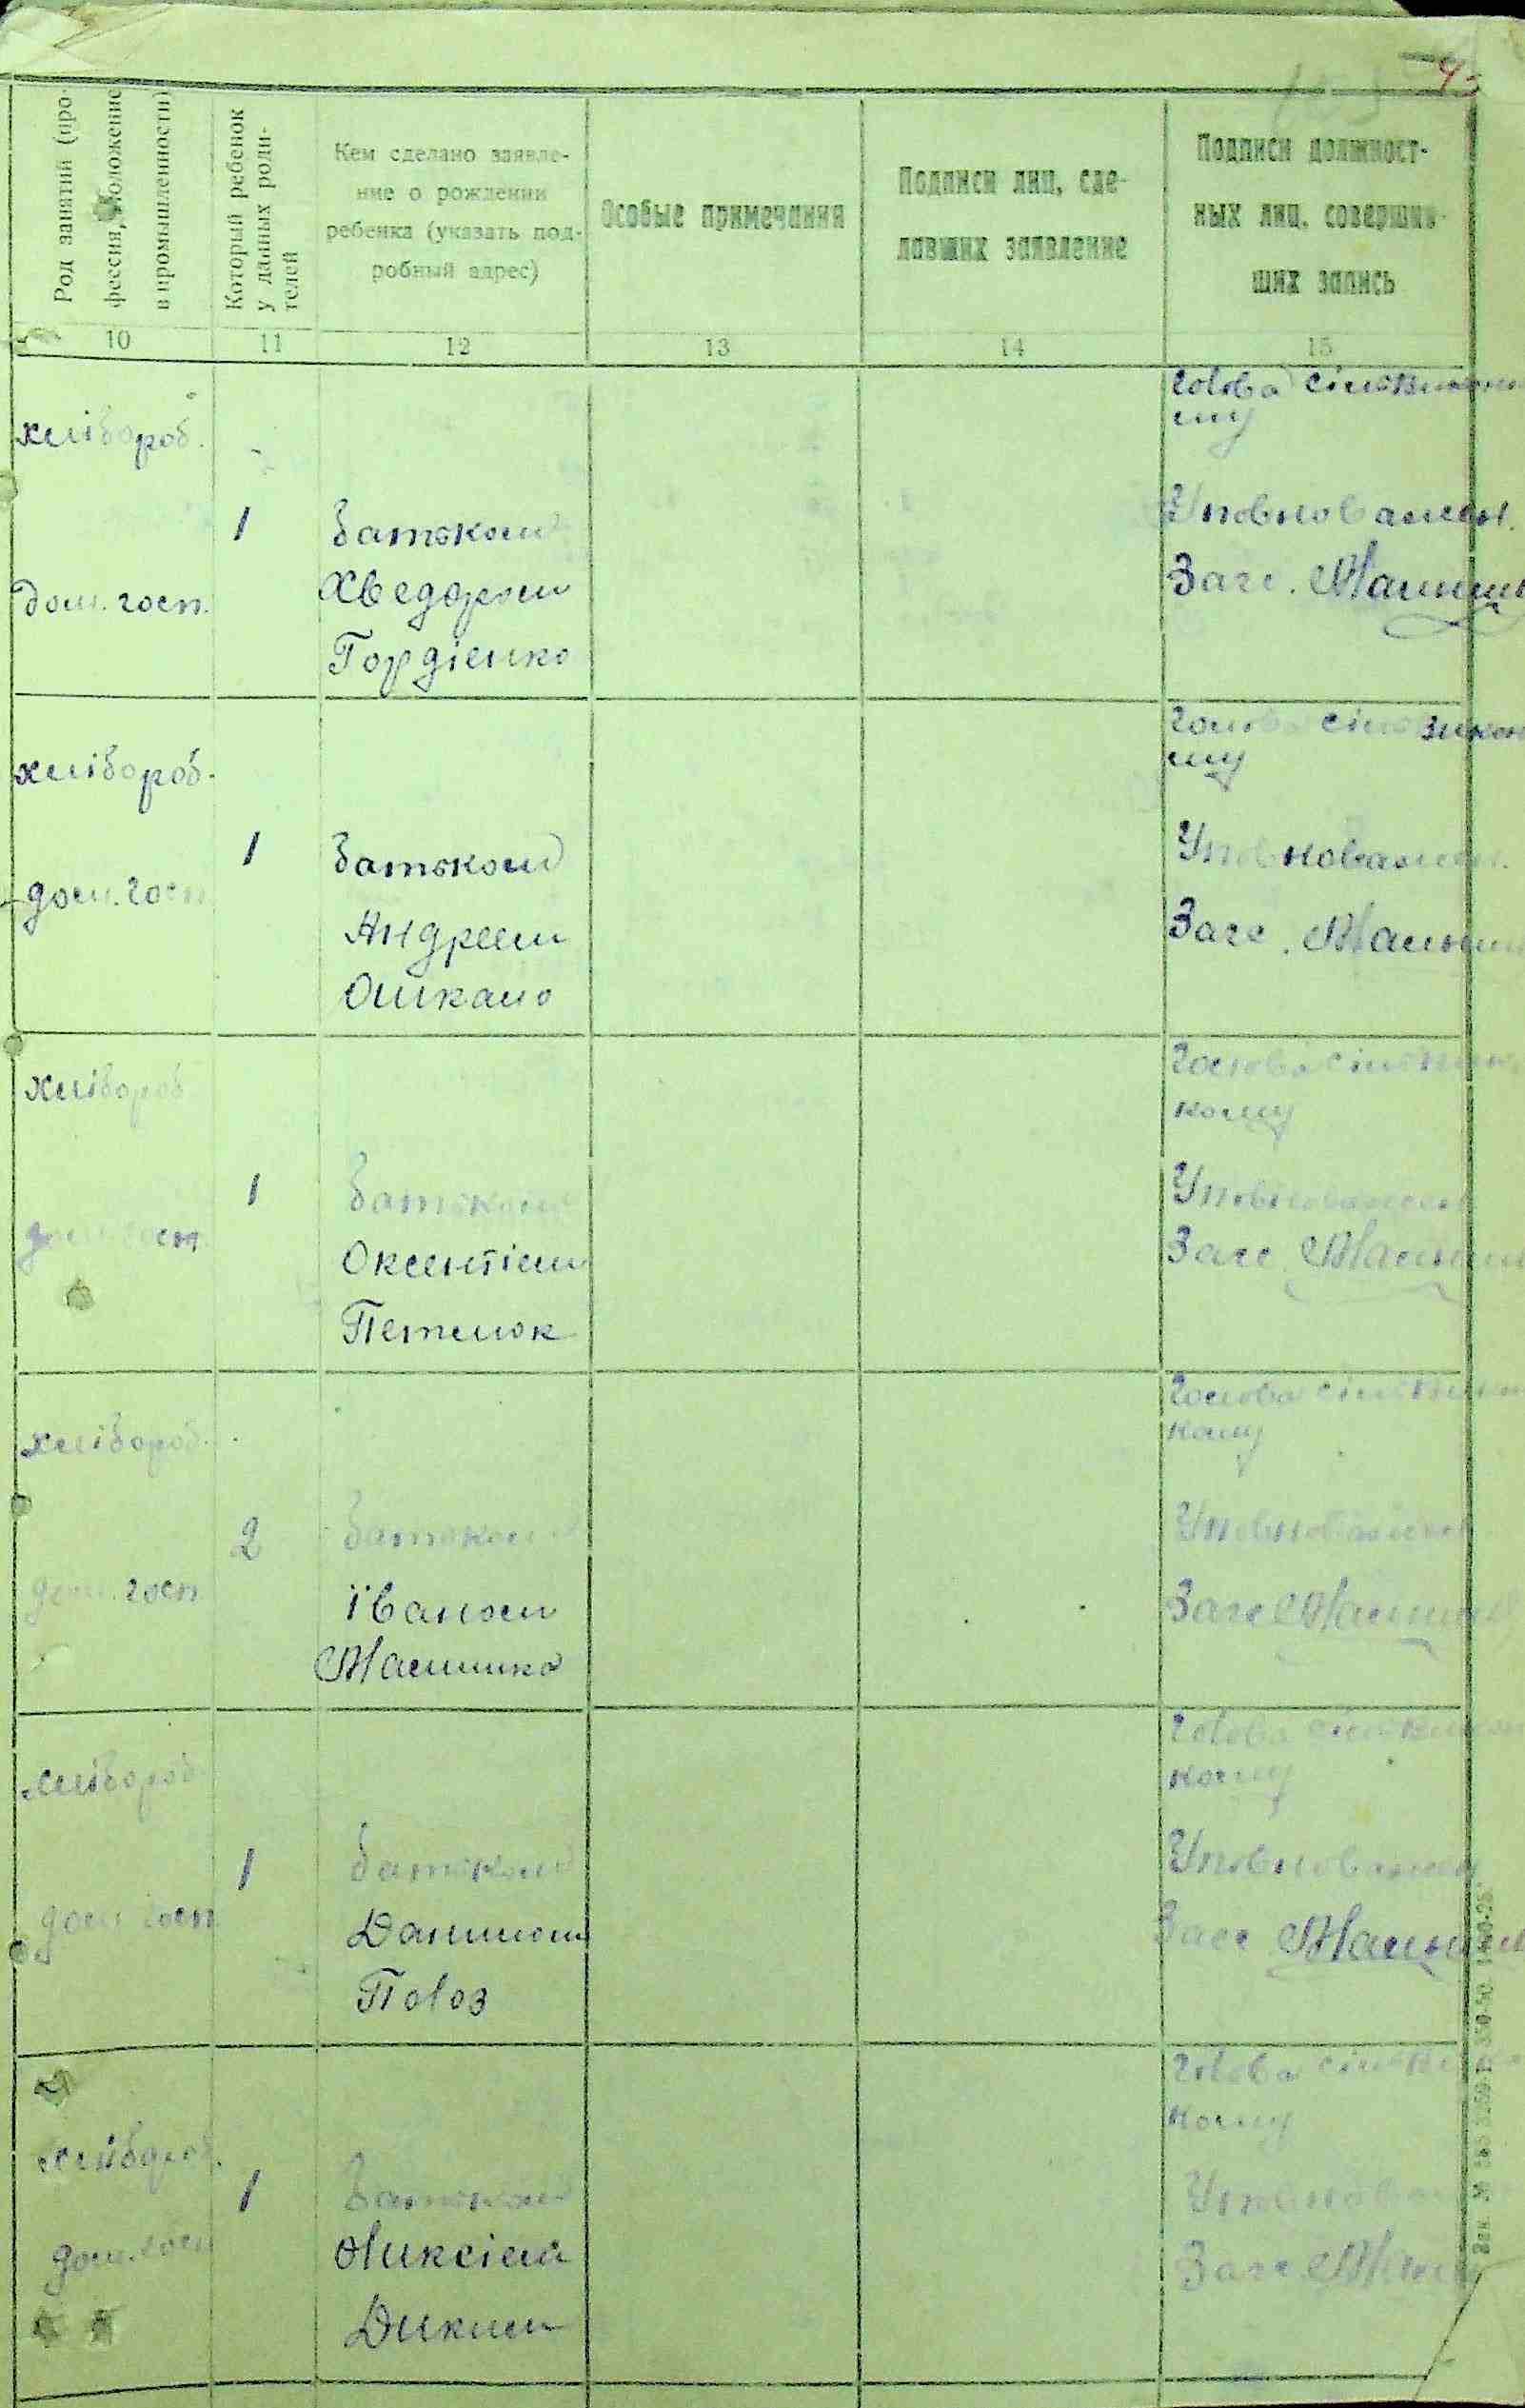 Род занятий (про-
фессия, положение
в промышленности)
Который ребенок
у данных роди-
телей
Кем сделано заявле-
ние о рождении
ребенка (указать под-
робный адрес)
Особые примечания
Подписи лиц, сде-
лавших заявление
Подписи должност-
ных лиц, соверши-
ших запись
10 11 12 13 14 15
хлібороб.
дом. госп.
1
Батьком
Хведором
Гордієнко
Голова сільвикон
кому
Уповноважен.
Загс.
хлібороб.
дом. госп
1
Батьком
Андреем
Ошкало
Голова сільвикон
кому
Уповноважен.
Загс.
хлібороб
дом. госп
1
Батьком
Оксентієм
Петлюк
Голова сільвикон
кому
Уповноважен
Загс
хлібороб.
дом. госп
2
Батьком
Їваном
Голова сільвикон
кому
Уповноважен
Загс
хлібороб
дом. госп
1
Батьком
Данилом
Полоз
Голова сільвикон
кому
Уповноважен
Загс
хлібороб.
дом. госп
1
Батьком
Оликсієм
Диким
Голова сільвикон
кому
Уповноваж
Загс